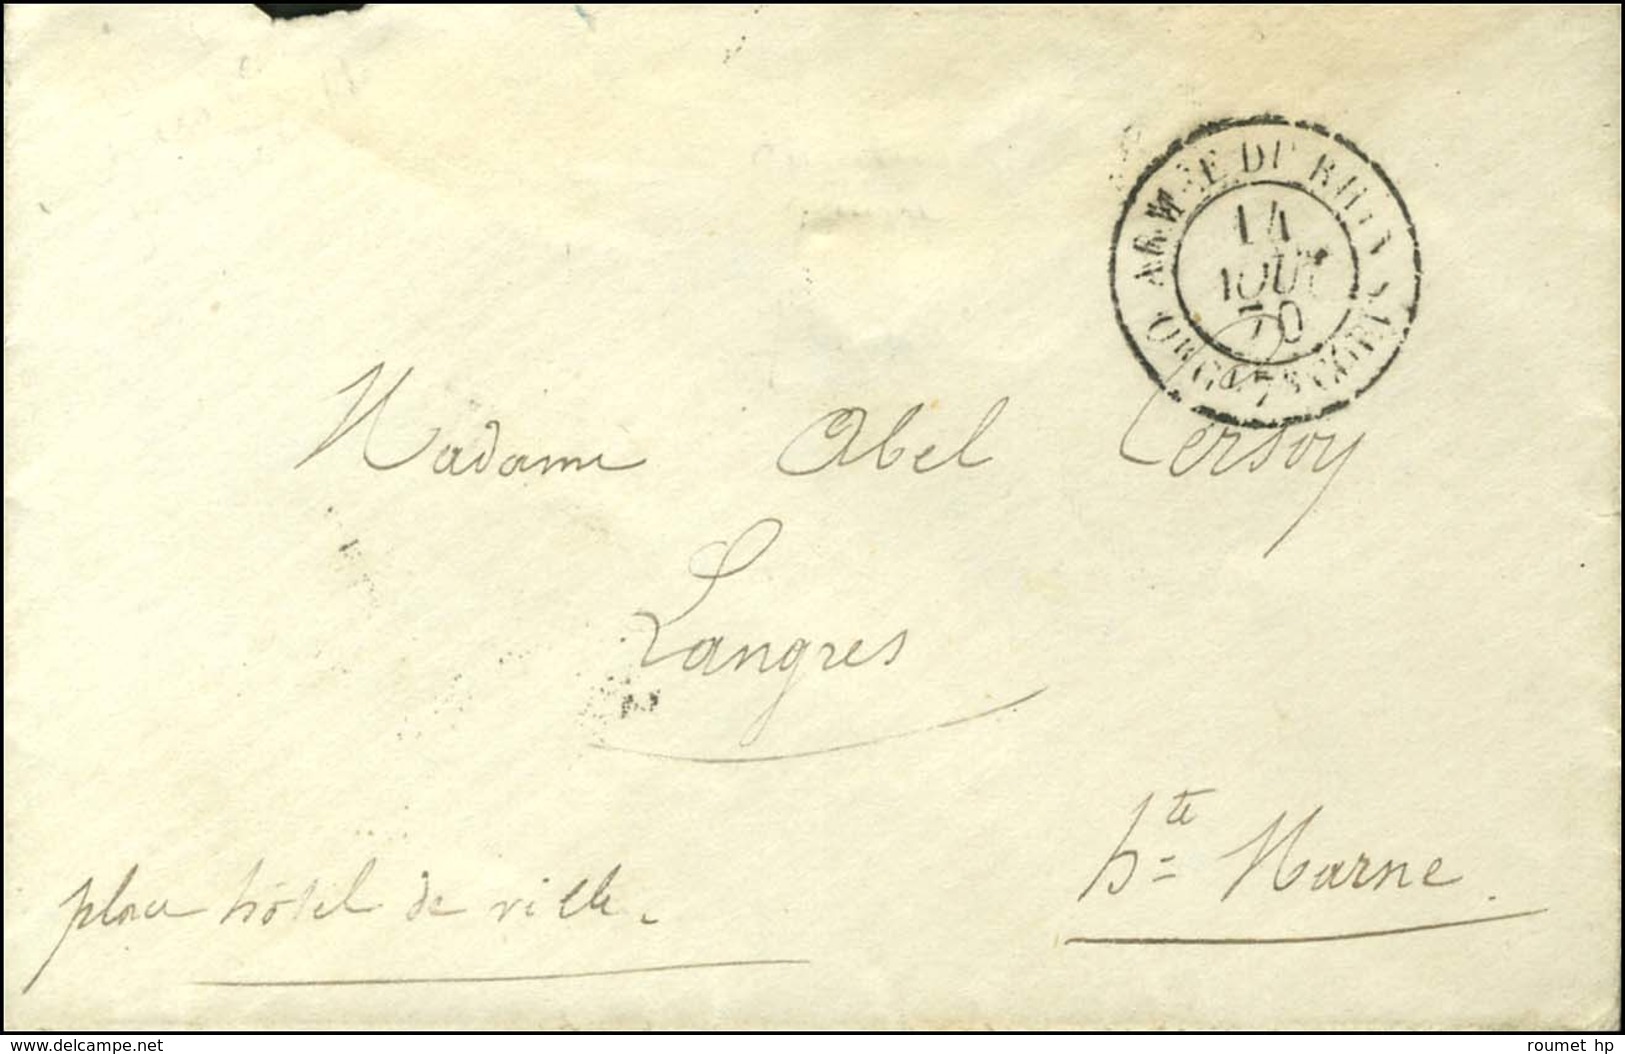 ARMÉE DU RHIN
14
AOUT
70
Madame Abel Kersoy
Langres
hte Marne.
place hôtel de ville.
delcampe.net
roumet hp